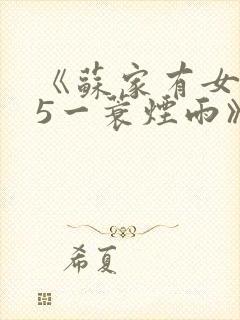 《蘇家有女
5一蓑煙雨》
希夏